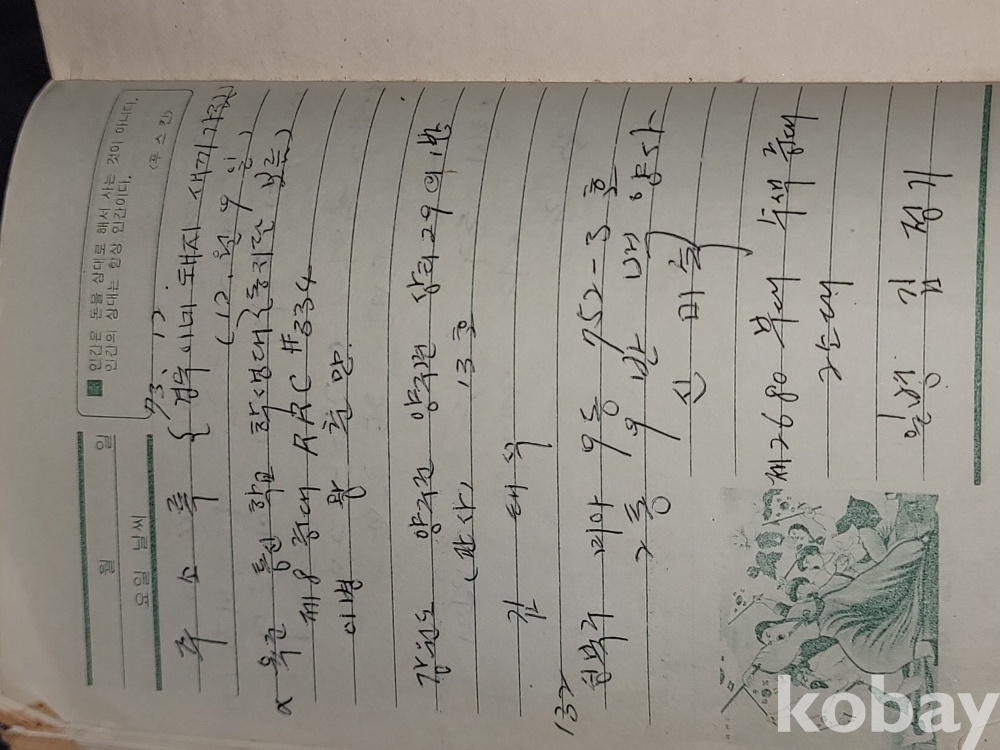 월 일
요일 날씨
■ 인간은 돈을 상대로 해서 사는 것이 아니다.
인간의 상대는 항상 인간이다.
(푸스킨)
73. 12.
주 소 록 { 검둥이네 돼지 새끼가짐
(12. 월 9 일)
육군 통신 학교 학생대 근통지단
제 8 중대 ARC #334
이병 황 환 만.
강원도 양구군 양구면 상리 29의 1반
(관사) 13호
김 태 식
132
성북구 미아 9동 752-3호
2통 9반 백양사
신 미숙
제2680 부대 수색 중대
2소대
일병 김 정기
kobay